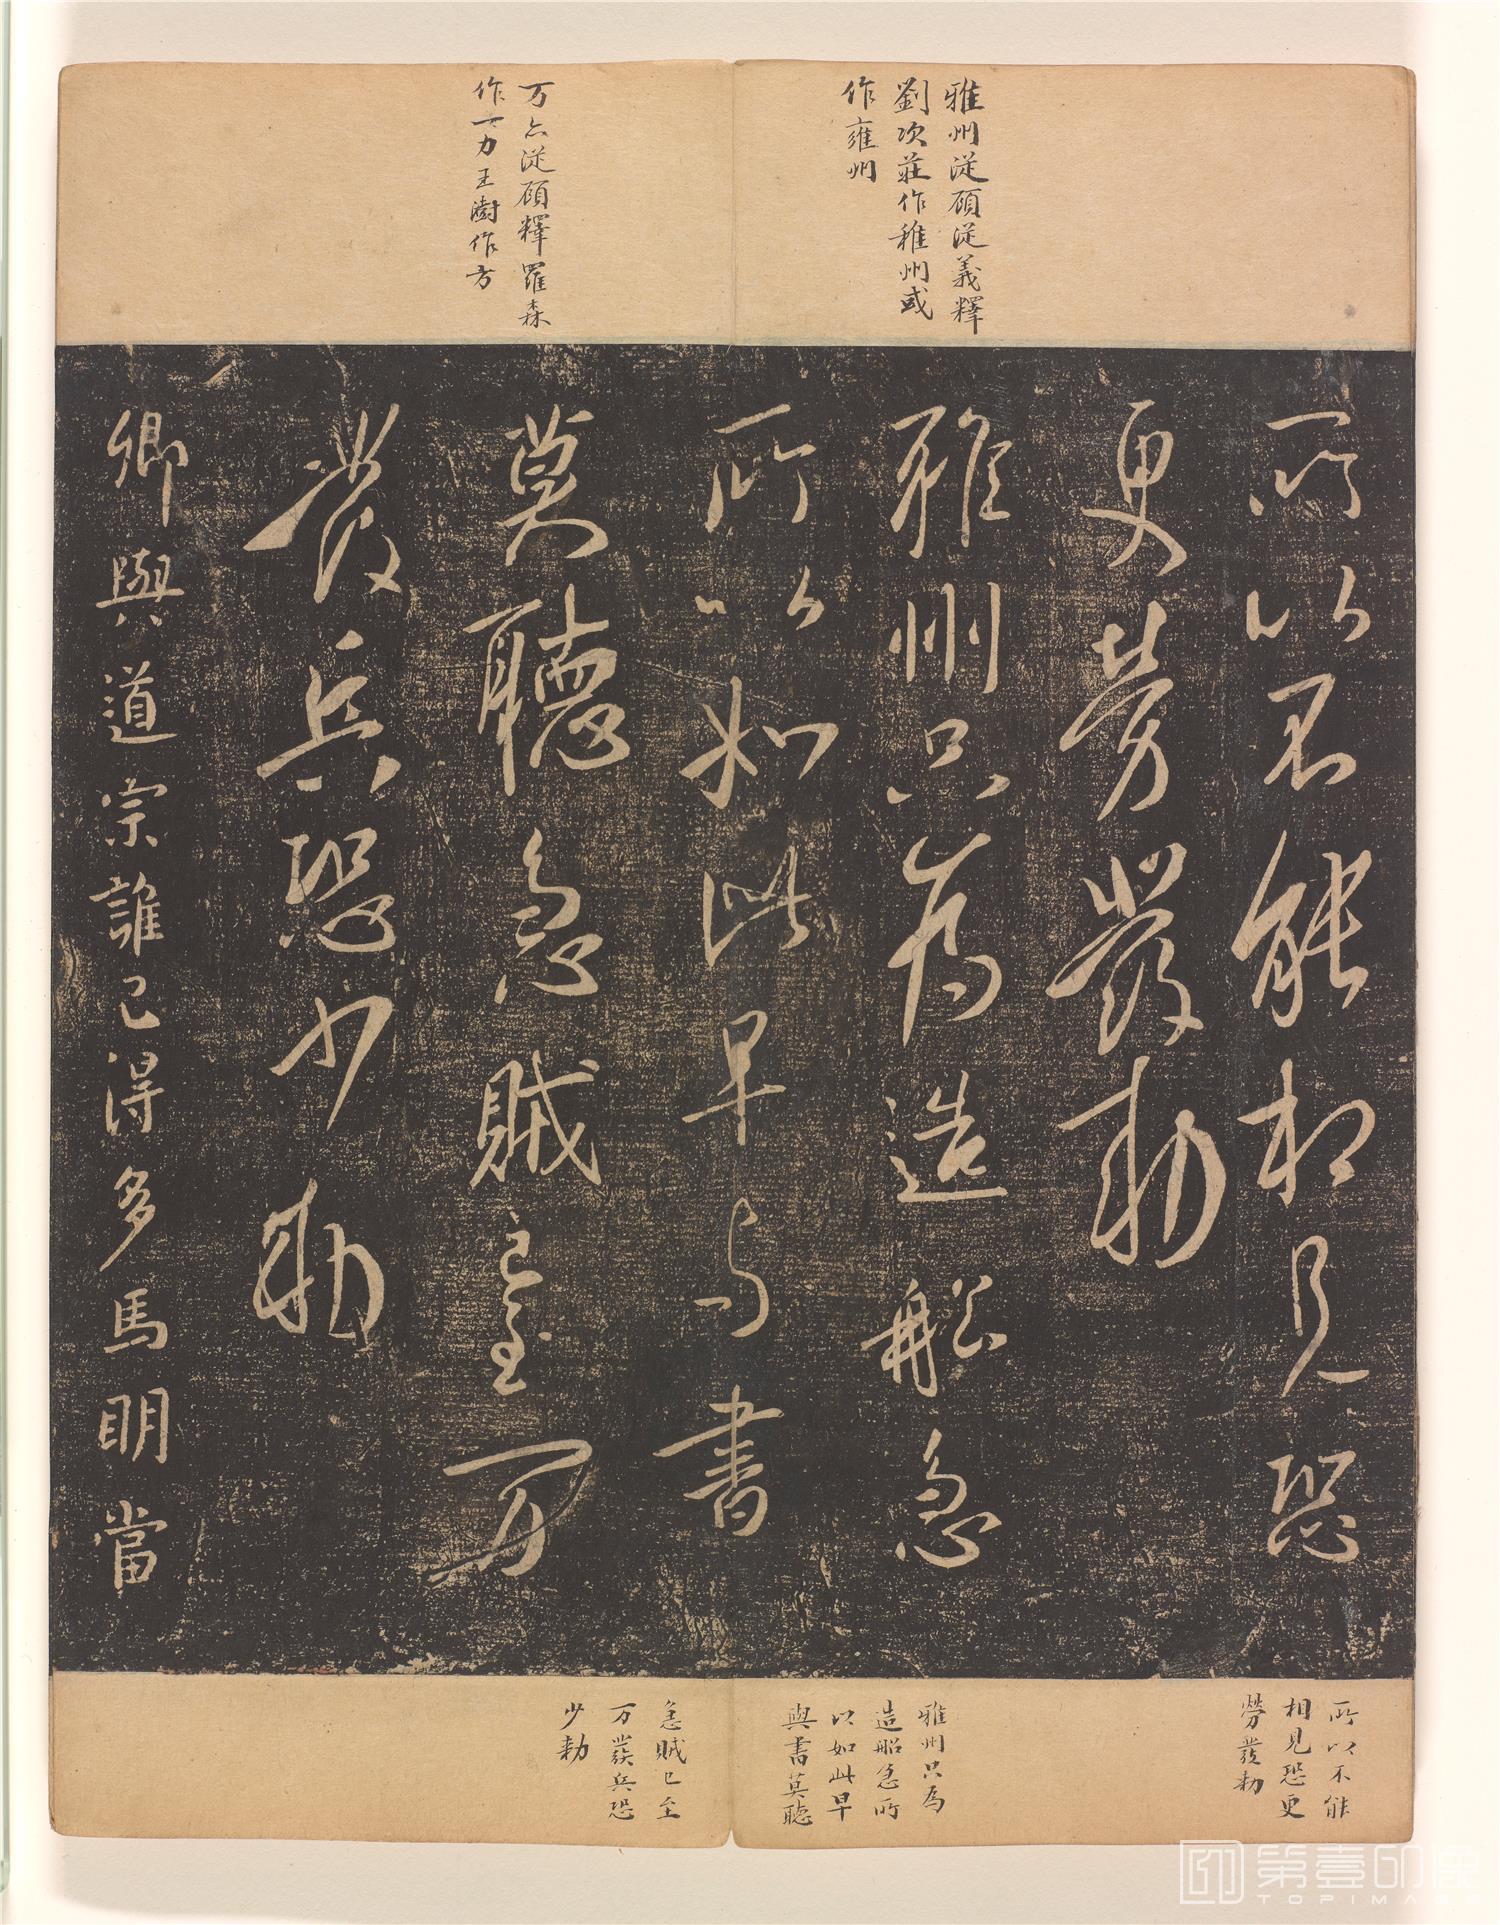 雅州從顧從義釋
劉次莊作稚州或
作雍州
万亦從顧釋羅森
作一力王澍作方
所以不能相見恐
更勞發勅
雅州只為造船急
所以如此早与書
莫聽急賊已至万
發兵恐少勅
卿與道宗誰已得多馬明當
所以不能
相見恐更
勞發勅
雅州只為
造船急所
以如此早
與書莫聽
急賊已至
万發兵恐
少勅
第壹印像
TOPIMAGE